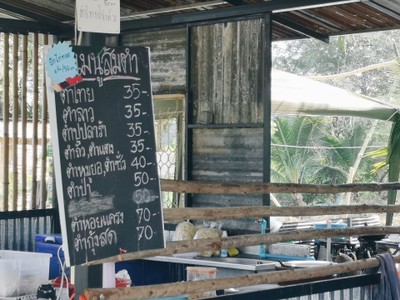 เมนูส้มตำ
ตำไทย 35-
ตำลาว 35-
ตำปูปลาร้า 35-
ตำถั่ว, ตำแตง 35-
ตำหมูยอ, ตำซั่ว 40-
ตำป่า 50-
50-
ตำหอยแครง 70-
ตำกุ้งสด 70-